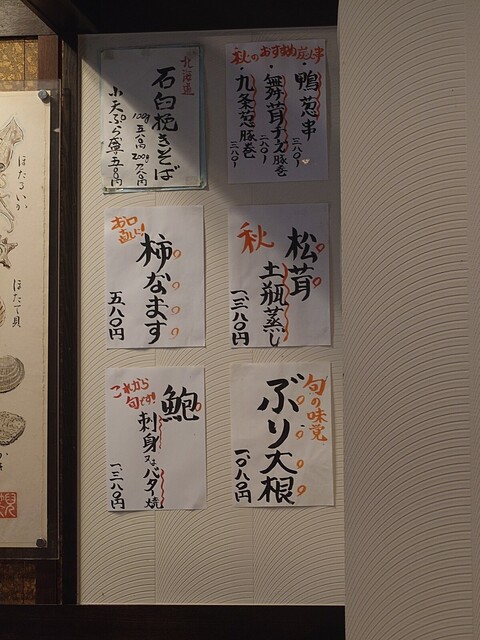 秋のおすすめ炭火串
・鴨葱串
三八〇円
・舞茸チーズ豚巻
二八〇円
・九条葱豚巻
二八〇円
北海道
石臼挽きそば
100g 五八〇円 200g 八八〇円
小天ぷら
五〇円
秋
松茸
土瓶蒸し
一、三八〇円
お口直しに
柿なます
五八〇円
旬の味覚
ぶり大根
一、〇八〇円
これから旬です!
鮑
刺身又はバター焼
一、三八〇円
ほたるいか
ほたて貝